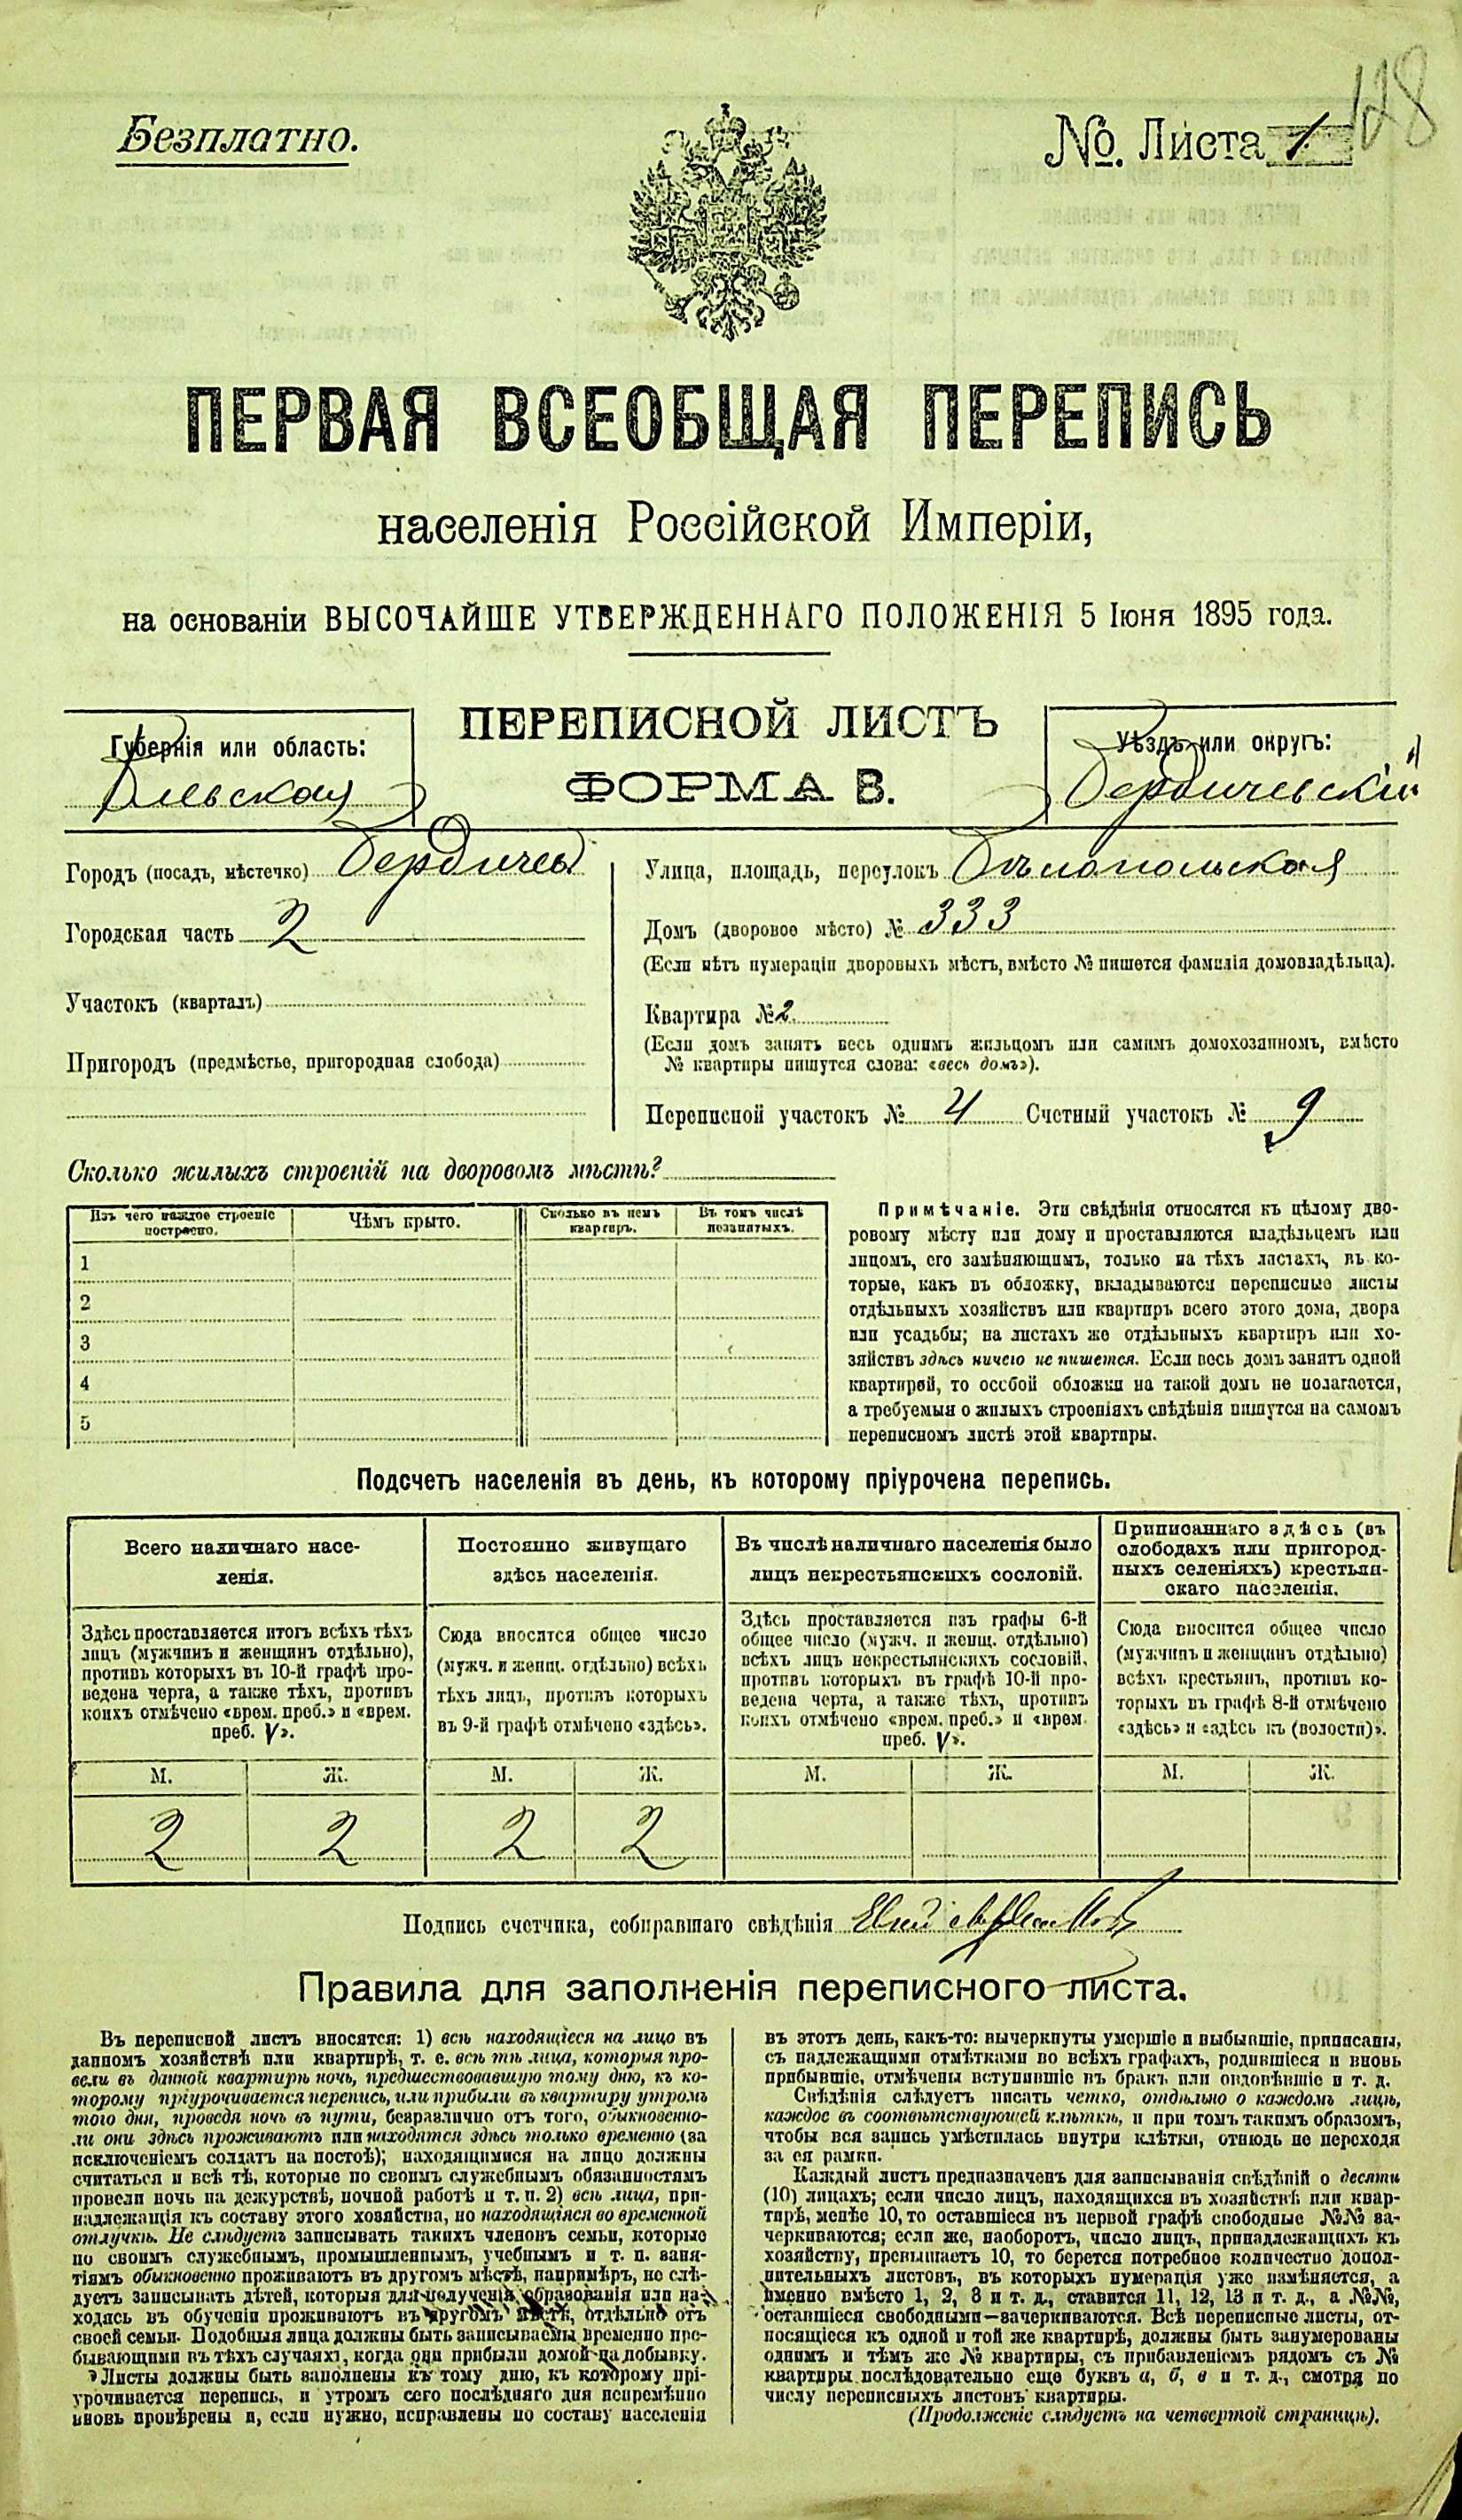 128
Безплатно.
№. Листа 1
ПЕРВАЯ ВСЕОБЩАЯ ПЕРЕПИСЬ
населенія Россійской Имперіи,
на основаніи ВЫСОЧАЙШЕ УТВЕРЖДЕННАГО ПОЛОЖЕНІЯ 5 Іюня 1895 года.
ПЕРЕПИСНОЙ ЛИСТЪ
ФОРМА В.
Губернія или область:
Кіевская
Уѣздъ или округъ:
Бердичевскій
Городъ (посадъ, мѣстечко) Бердичевъ
Городская часть 2
Участокъ (кварталъ)
Пригородъ (предмѣстье, пригородная слобода)
Улица, площадь, переулокъ Бѣлопольская
Домъ (дворовое мѣсто) № 333
(Если нѣтъ нумераціи дворовыхъ мѣстъ, вмѣсто № пишется фамилія домовладѣльца).
Квартира № 2
(Если домъ занятъ весь однимъ жильцомъ или самимъ домохозяиномъ, вмѣсто
№ квартиры пишутся слова: «весь домъ»).
Переписной участокъ № 4 Счетный участокъ № 9
Сколько жилыхъ строеній на дворовомъ мѣстѣ?
Изъ чего каждое строеніе
построено.
Чѣмъ крыто.
Сколько въ немъ
квартиръ.
Въ томъ числѣ
незанятыхъ.
1
2
3
4
5
Примѣчаніе. Эти свѣдѣнія относятся къ цѣлому дво-
ровому мѣсту или дому и проставляются владѣльцемъ или
лицомъ, его замѣняющимъ, только на тѣхъ листахъ, въ ко-
торые, какъ въ обложку, вкладываются переписные листы
отдѣльныхъ хозяйствъ или квартиръ всего этого дома, двора
или усадьбы; на листахъ же отдѣльныхъ квартиръ или хо-
зяйствъ здѣсь ничего не пишется. Если весь домъ занятъ одной
квартирой, то особой обложки на такой домъ не полагается,
а требуемыя о жилыхъ строеніяхъ свѣдѣнія пишутся на самомъ
переписномъ листѣ этой квартиры.
Подсчетъ населенія въ день, къ которому пріурочена перепись.
Всего наличнаго насе-
ленія.
Здѣсь проставляется итогъ всѣхъ тѣхъ
лицъ (мужчинъ и женщинъ отдѣльно),
противъ которыхъ въ 10-й графѣ про-
ведена черта, а также тѣхъ, противъ
коихъ отмѣчено «врем. преб.» и «врем.
преб. V».
Постоянно живущаго
здѣсь населенія.
Сюда вносится общее число
(мужч. и женщ. отдѣльно) всѣхъ
тѣхъ лицъ, противъ которыхъ
въ 9-й графѣ отмѣчено «здѣсь».
Въ числѣ наличнаго населенія было
лицъ некрестьянскихъ сословій.
Здѣсь проставляется изъ графы 6-й
общее число (мужч. и женщ. отдѣльно)
всѣхъ лицъ некрестьянскихъ сословій,
противъ которыхъ въ графѣ 10-й про-
ведена черта, а также тѣхъ, противъ
коихъ отмѣчено «врем. преб.» и «врем.
преб. V».
Приписаннаго здѣсь (въ
слободахъ или пригород-
ныхъ селеніяхъ) крестьян-
скаго населенія.
Сюда вносится общее число
(мужчинъ и женщинъ отдѣльно)
всѣхъ крестьянъ, противъ ко-
торыхъ въ графѣ 8-й отмѣчено
«здѣсь» и «здѣсь къ (волости)».
М. Ж. М. Ж. М. Ж. М. Ж.
2 2 2 2
Подпись счетчика, собиравшаго свѣдѣнія
Правила для заполненія переписного листа.
Въ переписной листъ вносятся: 1) всѣ находящіеся на лицо въ
данномъ хозяйствѣ или квартирѣ, т. е. всѣ тѣ лица, которыя про-
вели въ данной квартирѣ ночь, предшествовавшую тому дню, къ ко-
торому пріурочивается перепись, или прибыли въ квартиру утромъ
того дня, проведя ночь въ пути, безразлично отъ того, обыкновенно-
ли они здѣсь проживаютъ или находятся здѣсь только временно (за
исключеніемъ солдатъ на постоѣ); находящимися на лицо должны
считаться и всѣ тѣ, которые по своимъ служебнымъ обязанностямъ
провели ночь на дежурствѣ, ночной работѣ и т. п. 2) всѣ лица, при-
надлежащія къ составу этого хозяйства, но находящіяся во временной
отлучкѣ. Не слѣдуетъ записывать такихъ членовъ семьи, которые
по своимъ служебнымъ, промышленнымъ, учебнымъ и т. п. заня-
тіямъ обыкновенно проживаютъ въ другомъ мѣстѣ, напримѣръ, не слѣ-
дуетъ записывать дѣтей, которыя для полученія образованія или на-
ходясь въ обученіи проживаютъ въ другомъ мѣстѣ, отдѣльно отъ
своей семьи. Подобныя лица должны быть записываемы временно пре-
бывающими въ тѣхъ случаяхъ, когда они прибыли домой на побывку.
Листы должны быть заполнены къ тому дню, къ которому прі-
урочивается перепись, и утромъ сего послѣдняго дня непремѣнно
вновь провѣрены и, если нужно, исправлены по составу населенія
въ этотъ день, какъ-то: вычеркнуты умершіе и выбывшіе, приписаны,
съ надлежащими отмѣтками во всѣхъ графахъ, родившіеся и вновь
прибывшіе, отмѣчены вступившіе въ бракъ или овдовѣвшіе и т. д.
Свѣдѣнія слѣдуетъ писать четко, отдѣльно о каждомъ лицѣ,
каждое въ соотвѣтствующей клѣткѣ, и при томъ такимъ образомъ,
чтобы вся запись умѣстилась внутри клѣтки, отнюдь не переходя
за ея рамки.
Каждый листъ предназначенъ для записыванія свѣдѣній о десяти
(10) лицахъ; если число лицъ, находящихся въ хозяйствѣ или квар-
тирѣ, менѣе 10, то оставшіеся въ первой графѣ свободные №№ за-
черкиваются; если же, наоборотъ, число лицъ, принадлежащихъ къ
хозяйству, превышаетъ 10, то берется потребное количество допол-
нительныхъ листовъ, въ которыхъ нумерація уже измѣняется, а
именно вмѣсто 1, 2, 3 и т. д., ставится 11, 12, 13 и т. д., а №№,
оставшіеся свободными—зачеркиваются. Всѣ переписные листы, от-
носящіеся къ одной и той же квартирѣ, должны быть занумерованы
однимъ и тѣмъ же № квартиры, съ прибавленіемъ рядомъ съ №
квартиры послѣдовательно еще буквъ а, б, в и т. д., смотря по
числу переписныхъ листовъ квартиры.
(Продолженіе слѣдуетъ на четвертой страницѣ).